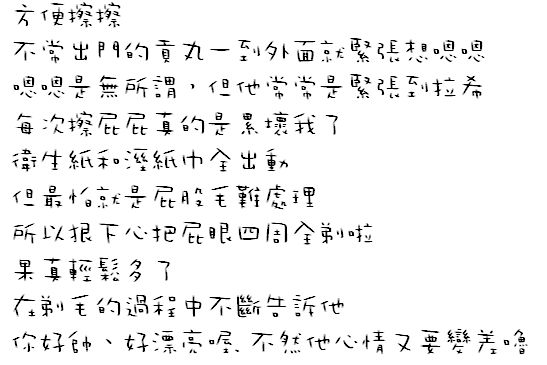 方便擦擦
不常出門的貢丸一到外面就緊張想嗯嗯
嗯嗯是無所謂，但他常常是緊張到拉希
每次擦屁屁真的是累壞我了
衛生紙和溼紙巾全出動
但最怕就是屁股毛難處理
所以狠下心把屁眼四周全剃啦
果真輕鬆多了
在剃毛的過程中不斷告訴他
你好帥、好漂亮喔.不然他心情又要變差嚕